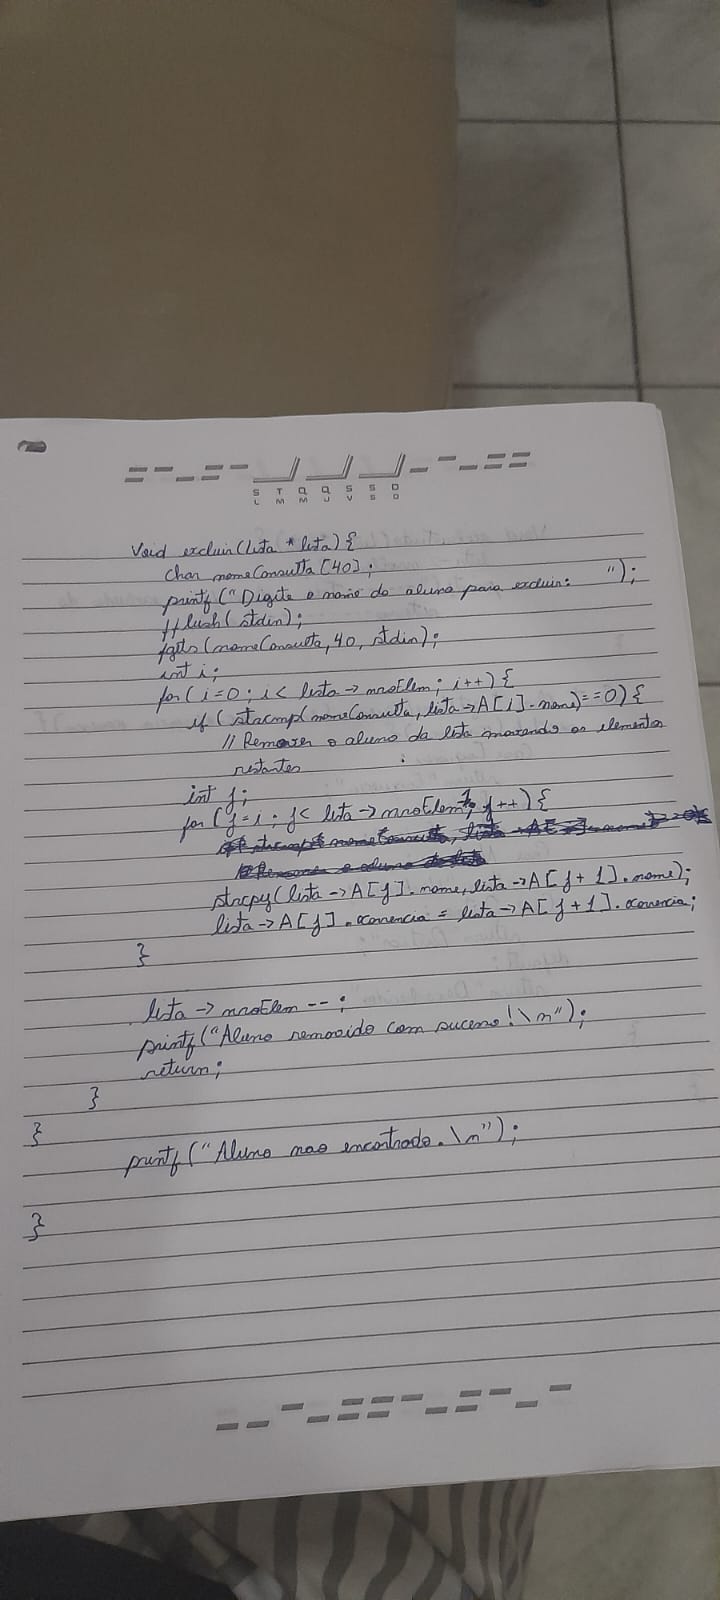 S T Q Q S S D
L M M J V S D
Void excluir(lista *lista){
char nomeConsulta[40];
printf("Digite o nome do aluno para excluir: ");
fflush(stdin);
fgets(nomeConsulta,40,stdin);
int i;
for(i=0;i< lista->nroElem;i++){
if(strcmp(nomeConsulta,lista->A[i].nome)==0){
// Remover o aluno da lista movendo os elementos
restantes
int j;
for(j=i;j< lista->nroElem-1;j++){
strcpy(lista->A[j].nome,lista->A[j+1].nome);
lista->A[j].ocorrencia = lista->A[j+1].ocorrencia;
}
lista->nroElem--;
printf("Aluno removido com sucesso!\n");
return;
}
}
printf("Aluno nao encontrado.\n");
}